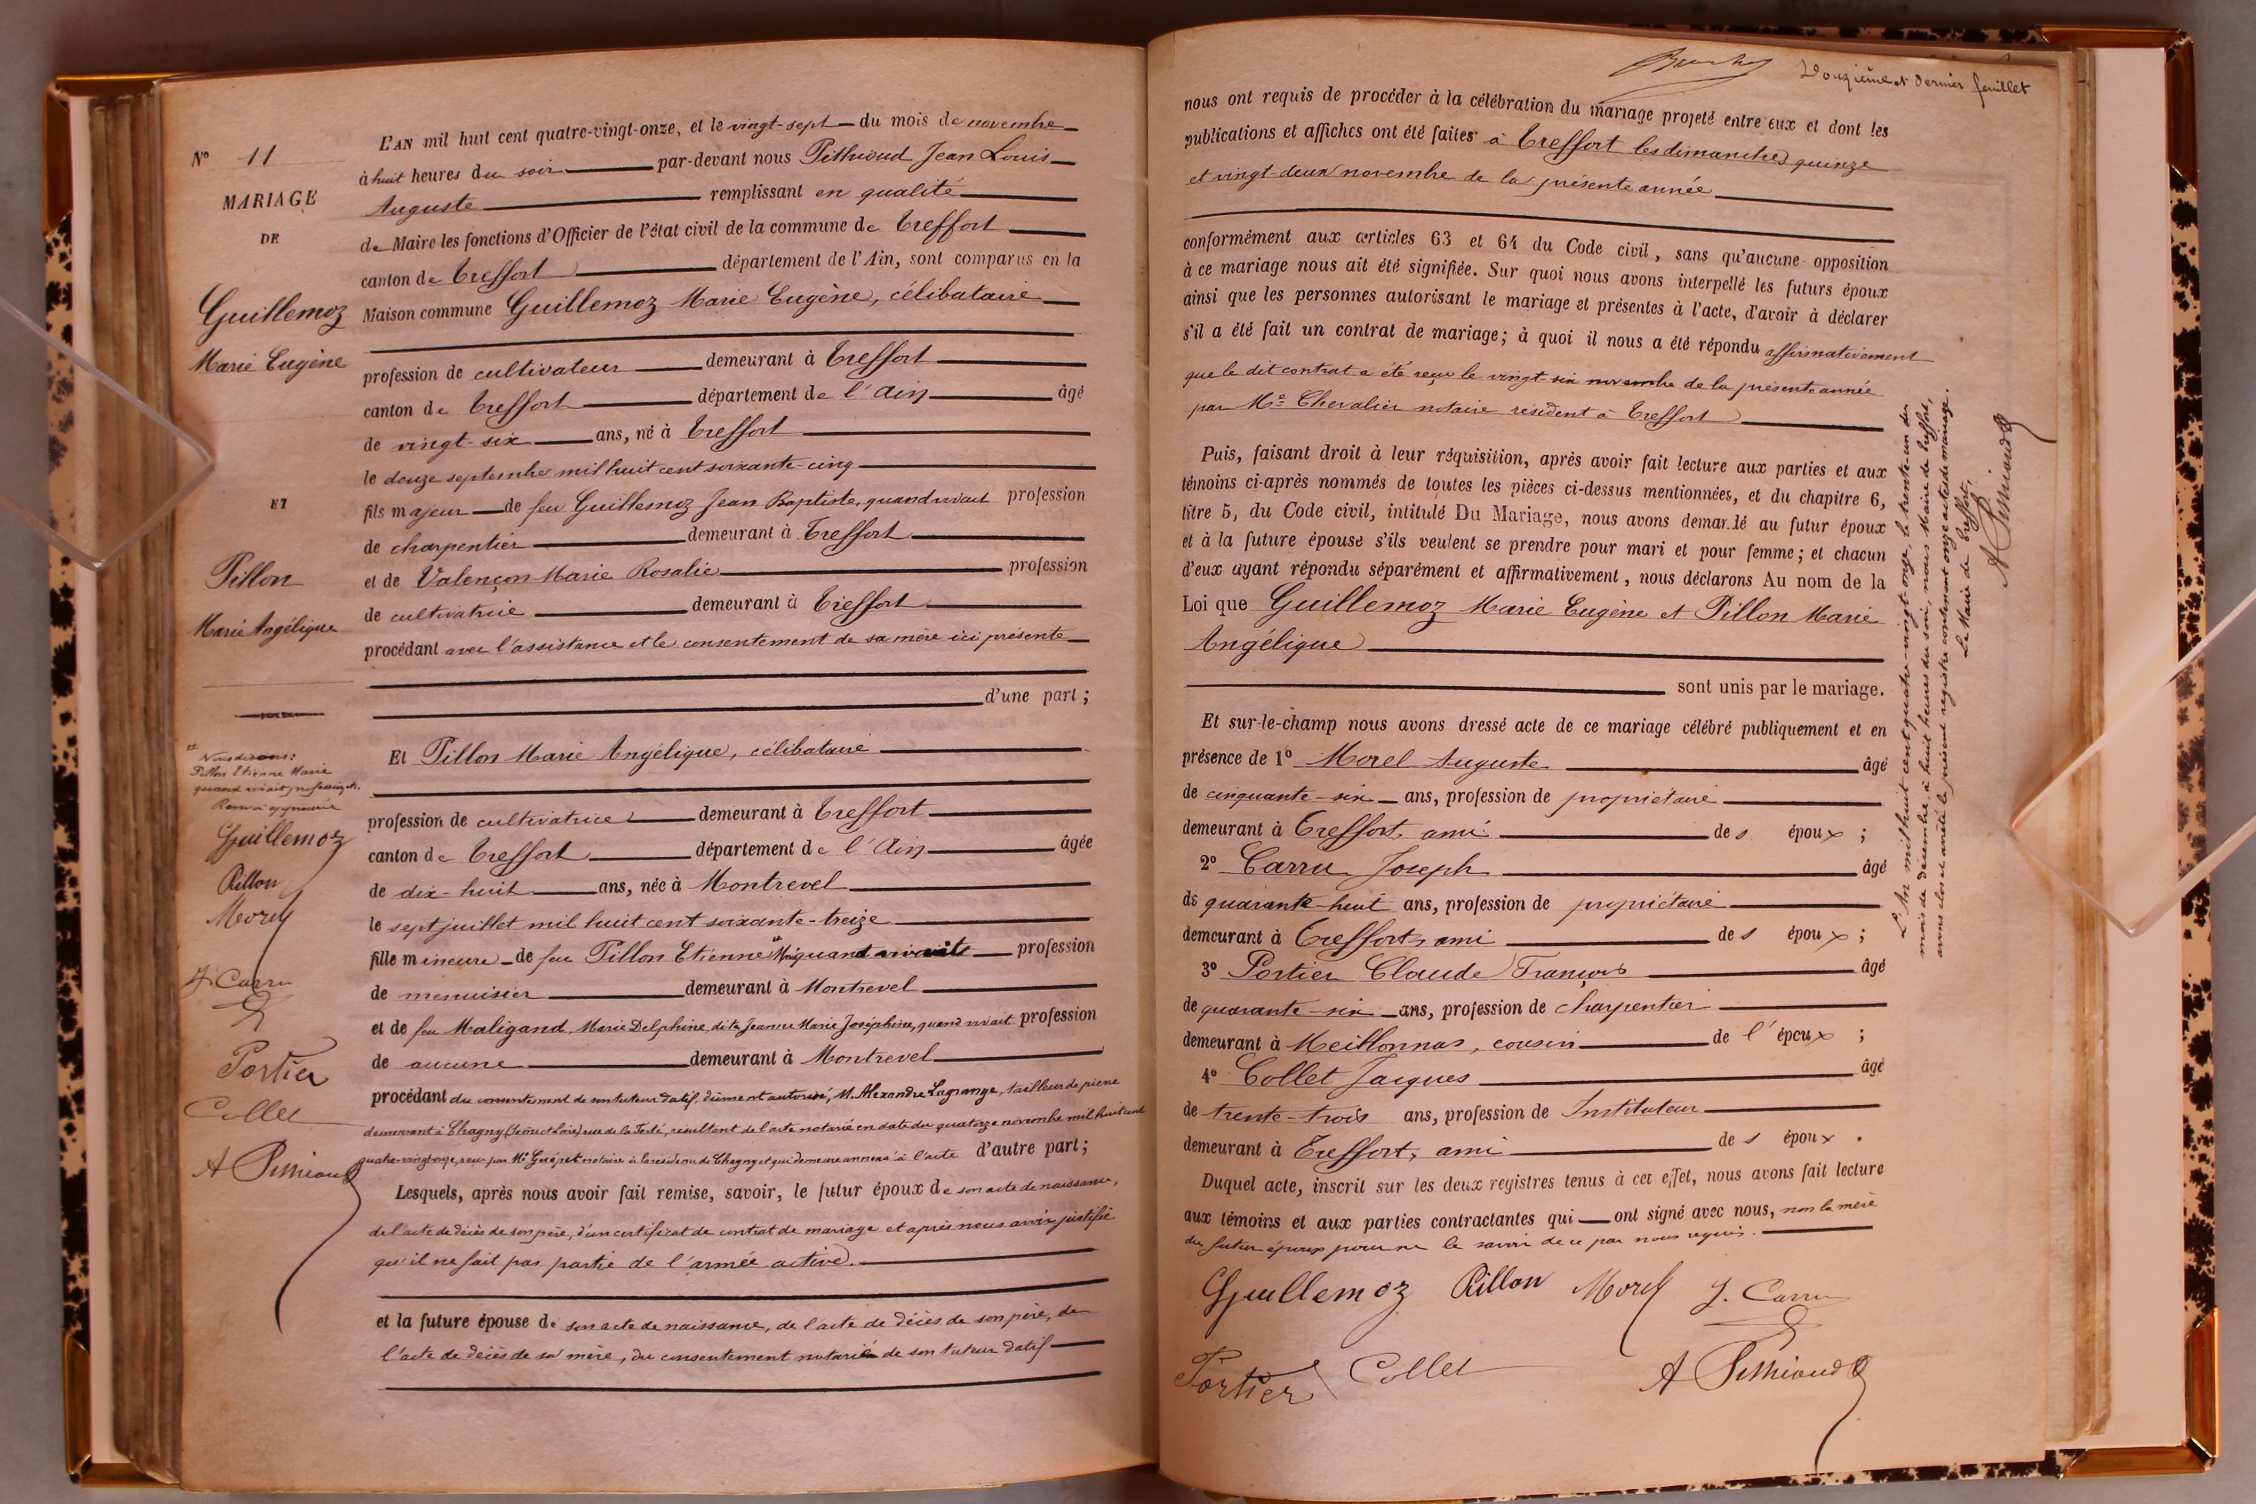 L'AN mil huit cent quatre-vingt-onze, et le vingt-sept du mois de novembre
à huit heures du soir par-devant nous Pithioud Jean Louis
Auguste remplissant en qualité
de Maire les fonctions d'Officier de l'état civil de la commune de Treffort
canton de Treffort département de l'Ain, sont comparus en la
Maison commune Guillemoz Marie Eugène, célibataire
profession de cultivateur demeurant à Treffort
canton de Treffort département de l'Ain âgé
de vingt-six ans, né à Treffort
le douze septembre mil huit cent soixante-cinq
fils majeur de feu Guillemoz Jean Baptiste, quand vivait profession
de charpentier demeurant à Treffort
et de Valençon Marie Rosalie profession
de cultivatrice demeurant à Treffort
procédant avec l'assistance et le consentement de sa mère ici présente
d'une part ;
Et Pillon Marie Angélique, célibataire
profession de cultivatrice demeurant à Treffort
canton de Treffort département de l'Ain âgée
de dix-huit ans, née à Montrevel
le sept juillet mil huit cent soixante-treize
fille mineure de feu Pillon Etienne quand vivait profession
de menuisier demeurant à Montrevel
et de feu Maligand, Marie Delphine, dite Jeanne Marie Joséphine, quand vivait profession
de aucune demeurant à Montrevel
procédant du consentement de son tuteur datif, dûment autorisé, M. Alexandre Lagrange, tailleur de pierre
demeurant à Chagny (Saône et Loire) rue de la Ferté, résultant de l'acte notarié en date du quatorze novembre mil huit cent
quatre-vingt-onze, reçu par Me notaire à la résidence de Chagny et qui demeure annexé à l'acte d'autre part ;
Lesquels, après nous avoir fait remise, savoir, le futur époux de son acte de naissance,
de l'acte de décès de son père, d'un certificat de contrat de mariage et après nous avoir justifié
qu'il ne fait pas partie de l'armée active.
et la future épouse de son acte de naissance, de l'acte de décès de son père, de
l'acte de décès de sa mère, du consentement notarié de son tuteur datif
N° 11
MARIAGE
DE
Guillemoz
Marie Eugène
ET
Pillon
Marie Angélique
Nous disons :
Pillon Etienne Marie
quand vivait profession de.
Renvoi approuvé
Guillemoz
Pillon
Morel
J. Carru
Portier
Collet
A Pithioud
Douzième et dernier feuillet
nous ont requis de procéder à la célébration du mariage projeté entre eux et dont les
publications et affiches ont été faites à Treffort les dimanches quinze
et vingt-deux novembre de la présente année
conformément aux articles 63 et 64 du Code civil, sans qu'aucune opposition
à ce mariage nous ait été signifiée. Sur quoi nous avons interpellé les futurs époux
ainsi que les personnes autorisant le mariage et présentes à l'acte, d'avoir à déclarer
s'il a été fait un contrat de mariage ; à quoi il nous a été répondu affirmativement
que le dit contrat a été reçu le vingt-six novembre de la présente année
par Me Chevalier notaire résident à Treffort
Puis, faisant droit à leur réquisition, après avoir fait lecture aux parties et aux
témoins ci-après nommés de toutes les pièces ci-dessus mentionnées, et du chapitre 6,
titre 5, du Code civil, intitulé Du Mariage, nous avons demandé au futur époux
et à la future épouse s'ils veulent se prendre pour mari et pour femme ; et chacun
d'eux ayant répondu séparément et affirmativement, nous déclarons Au nom de la
Loi que Guillemoz Marie Eugène et Pillon Marie
Angélique
sont unis par le mariage.
Et sur-le-champ nous avons dressé acte de ce mariage célébré publiquement et en
présence de 1° Morel Auguste âgé
de cinquante-six ans, profession de propriétaire
demeurant à Treffort, ami des époux ;
2° Carru Joseph âgé
de quarante-huit ans, profession de propriétaire
demeurant à Treffort, ami des époux ;
3° Portier Claude François âgé
de quarante-six ans, profession de charpentier
demeurant à Meillonnas, cousin de l'époux ;
4° Collet Jacques âgé
de trente-trois ans, profession de Instituteur
demeurant à Treffort, ami des époux.
Duquel acte, inscrit sur les deux registres tenus à cet effet, nous avons fait lecture
aux témoins et aux parties contractantes qui ont signé avec nous, non la mère
du futur époux pour ne le savoir de ce par nous requis.
Guillemoz Pillon Morel J. Carru
Portier Collet A Pithioud
L'An mil huit cent quatre-vingt-onze, le trente-un du
mois de décembre, à huit heures du soir, nous Maire de Treffort,
avons clos et arrêté le présent registre contenant onze actes de mariage.
Le Maire de Treffort,
A Pithioud